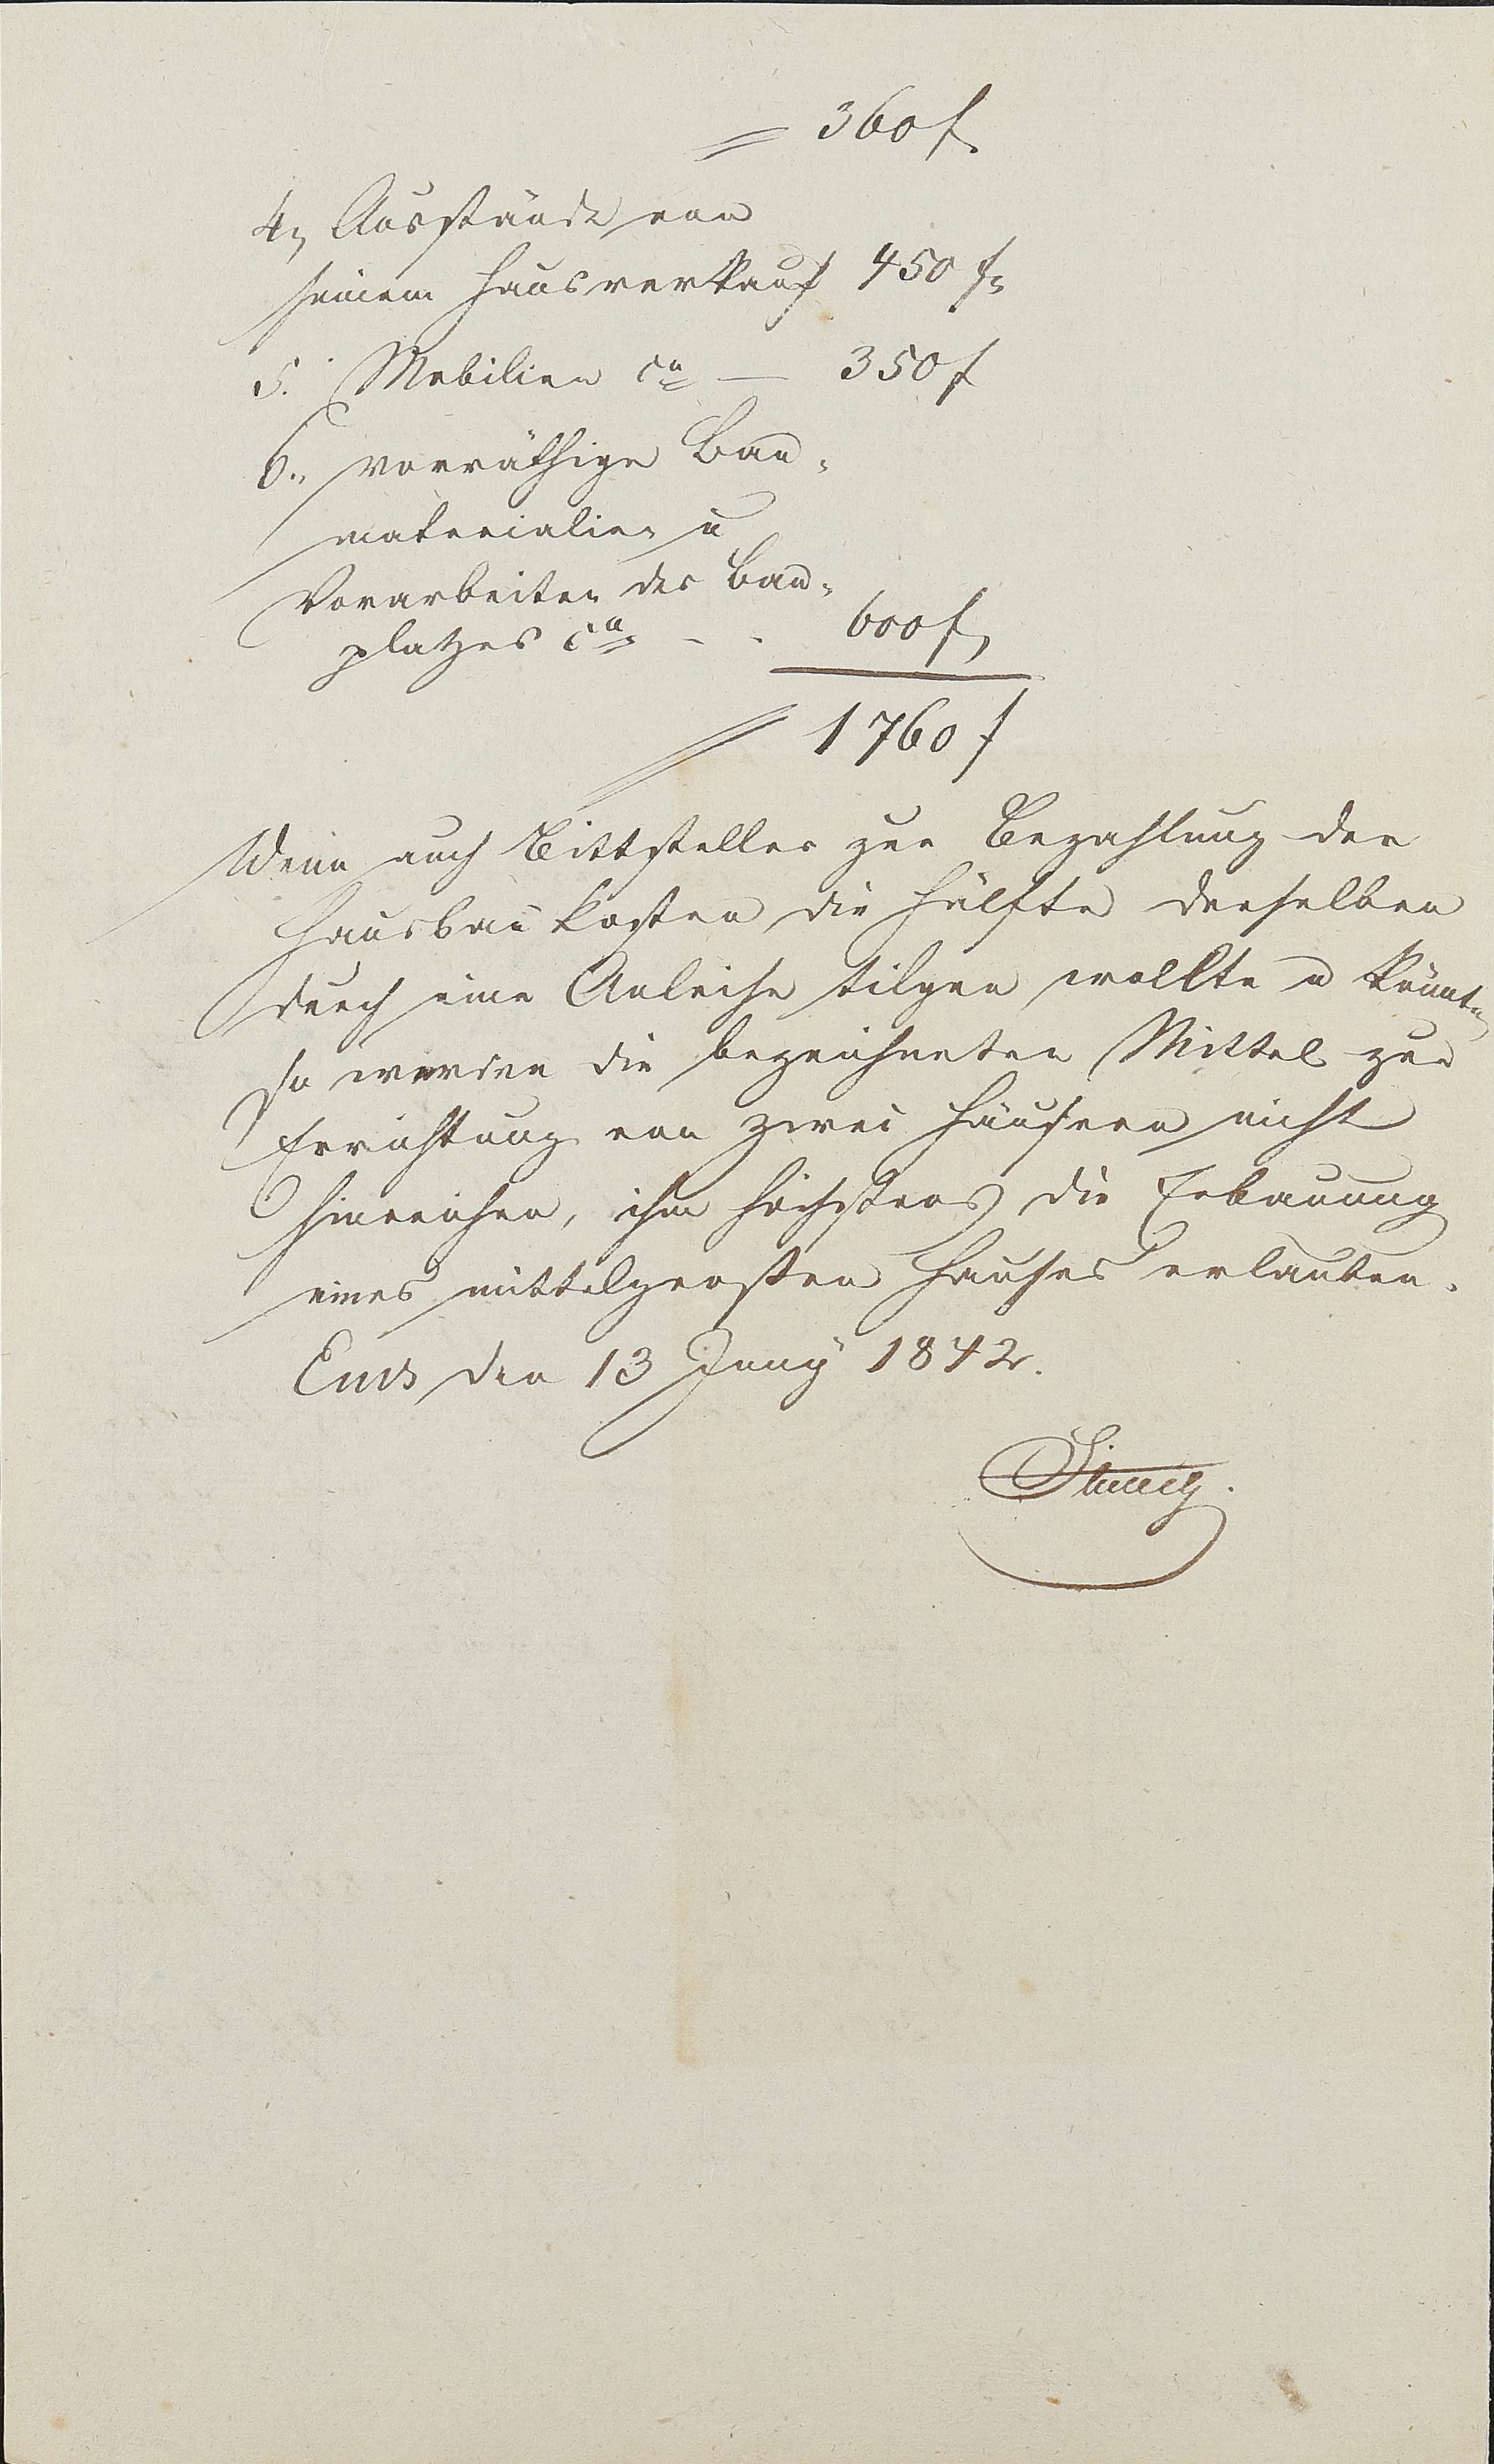 = 360 f.
4, Ausstände von
seinem Hausverkauf 450 f,
5. Mobilien ca — 350 f
6., vorräthige Bau-
materialien u
Vorarbeiten des Bau-
platzes ca - - 600 f,
= 1760 f
Wenn auch Bittsteller zur Bezahlung der
Hausbaukosten die Hälfte derselben
durch eine Anleihe tilgen wollte u könnte,
so werden die bezeichneten Mittel zur
Errichtung von zwei Häusern nicht
hinreichen, ihm höchstens die Erbauung
eines mittelgrosten Hauses erlauben.
Ems den 13 Juny 1842.